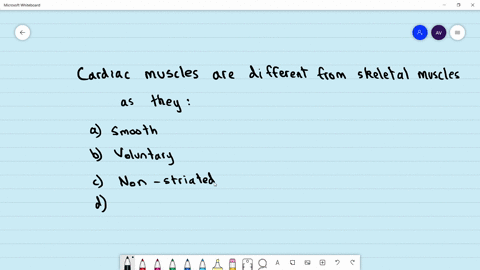 Microsoft Whiteboard
AV
Cardiac muscles are different from skeletal muscles
as they:
a) Smooth
b) Voluntary
c) Non-striated
d)